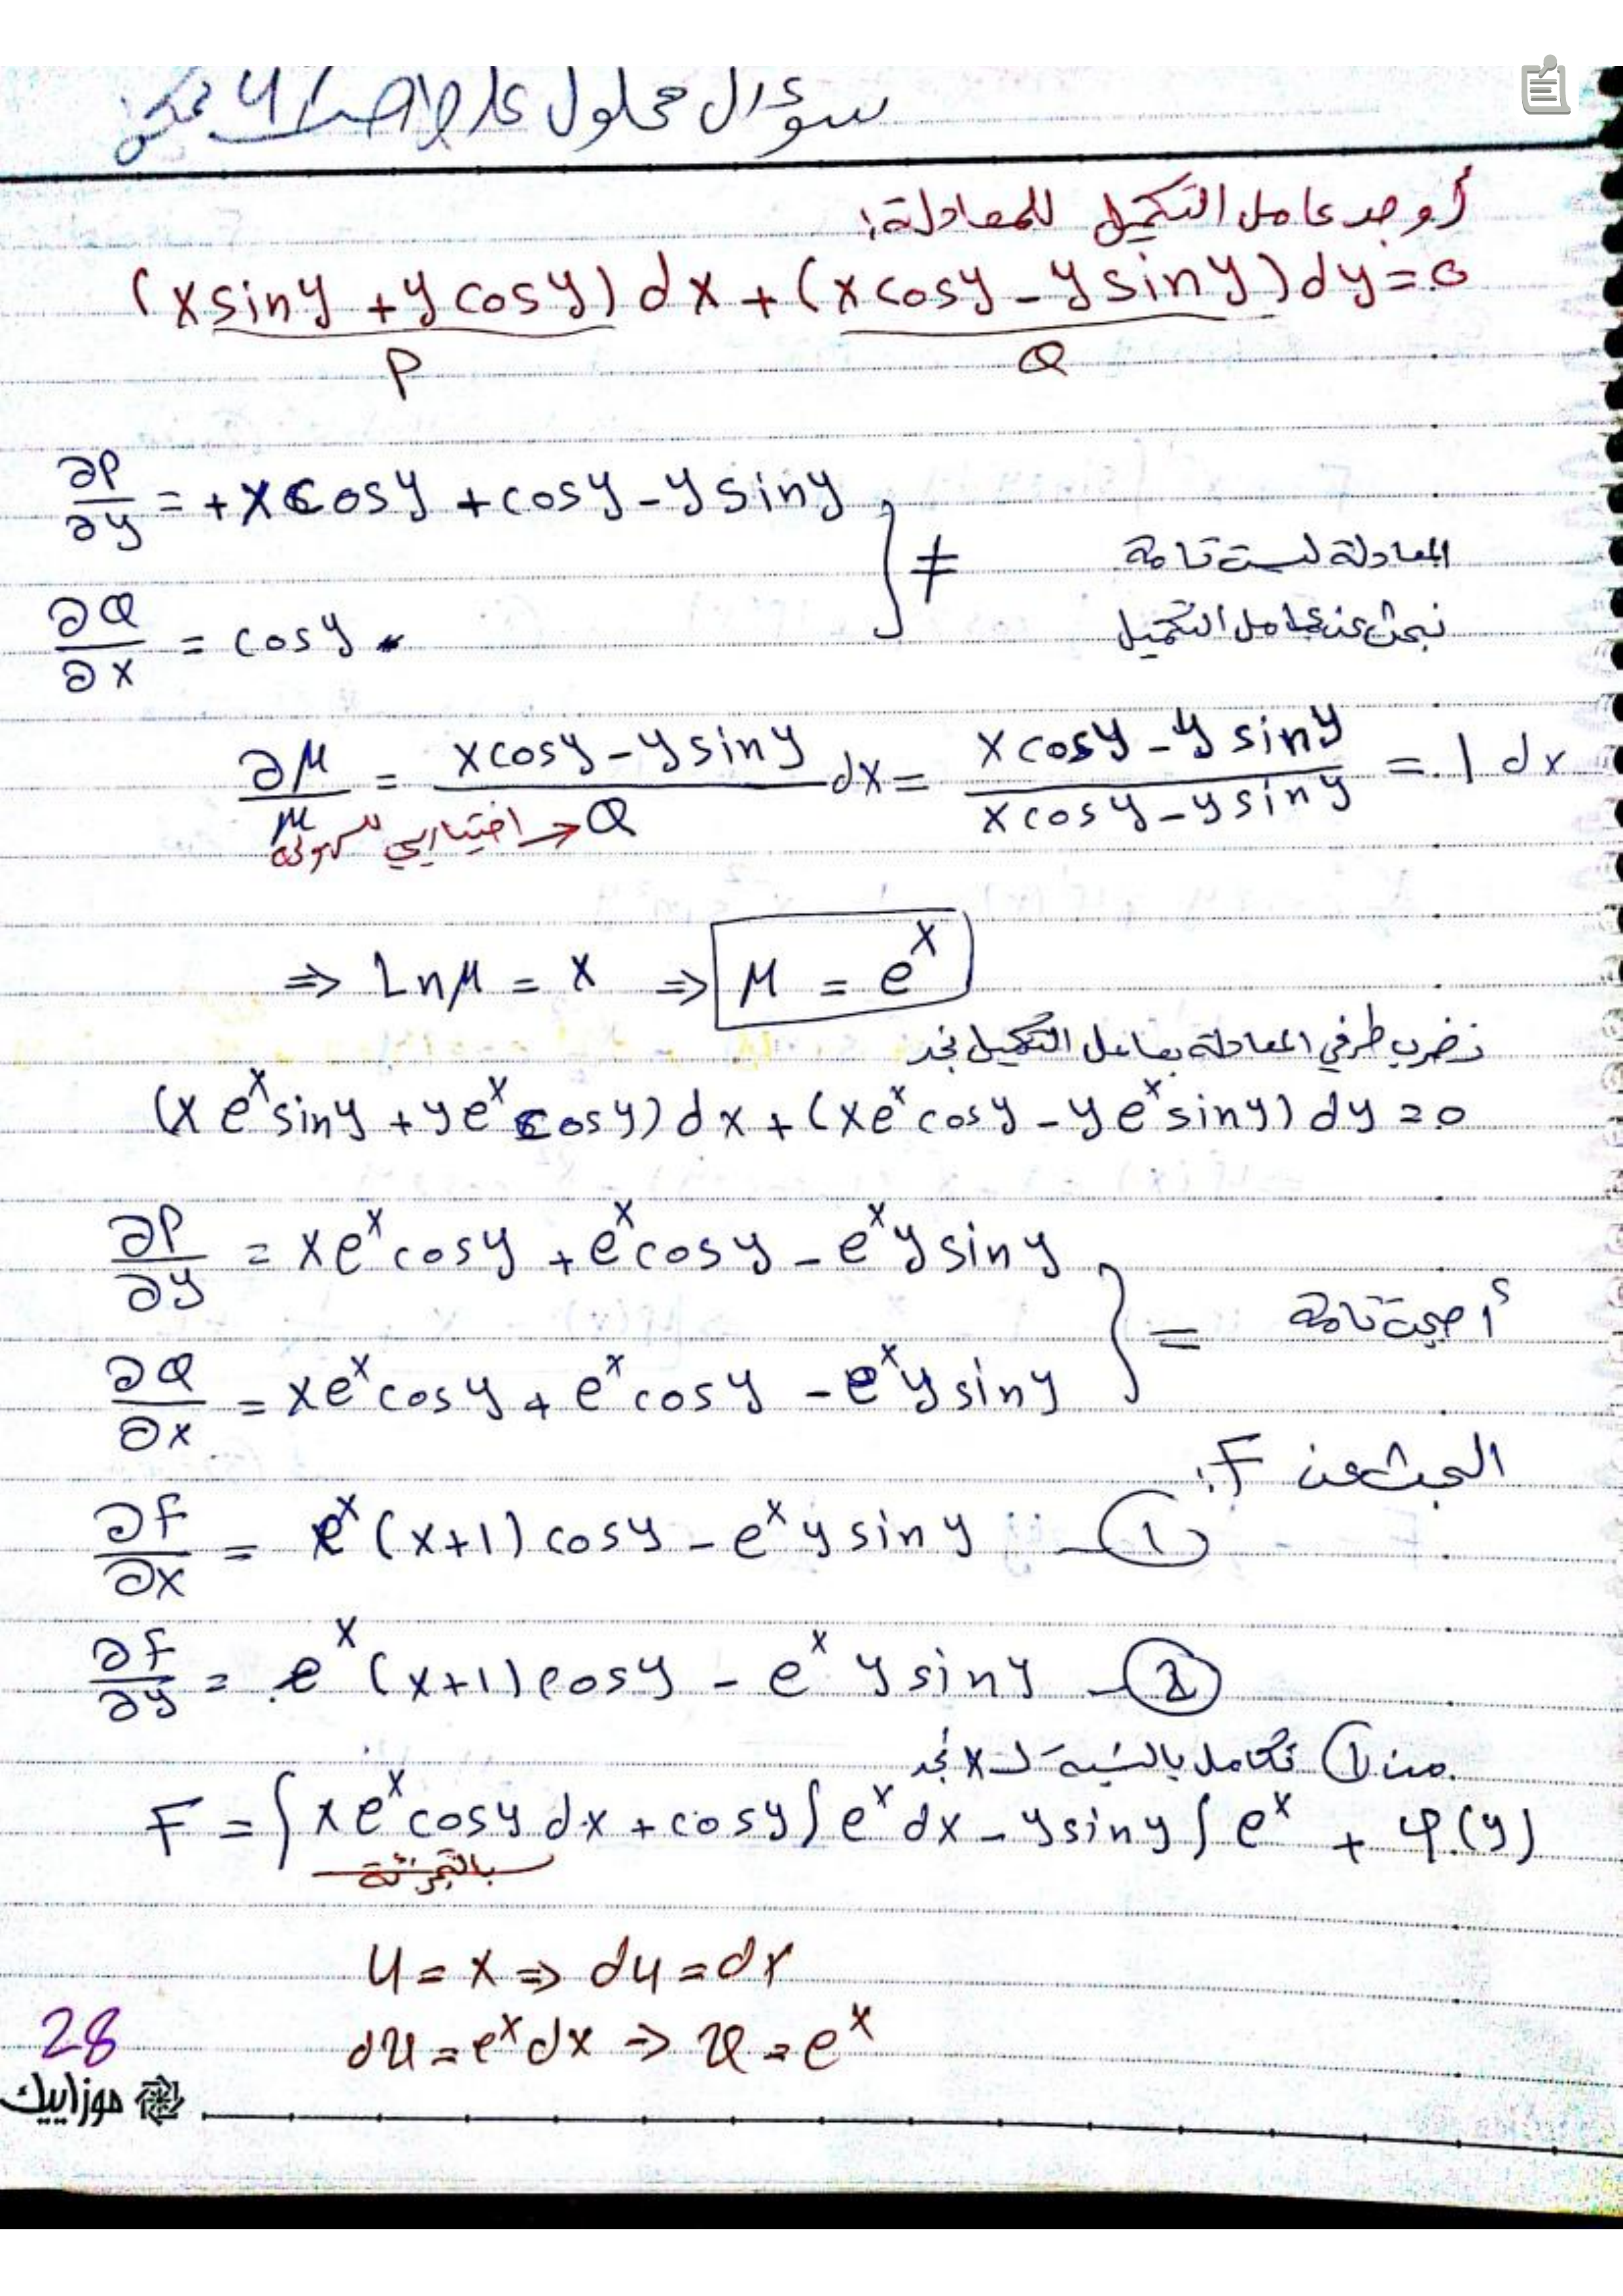 سؤال محلول
أوجد عامل التكميل للمعادلة:
(x sin y + y cos y) dx + (x cos y - y sin y) dy = 0
P Q
∂P/∂y = + x cos y + cos y - y sin y
≠ المعادلة ليست تامة
∂Q/∂x = cos y نبحث عن عامل التكميل
∂μ/μ = (x cos y - y sin y)/Q dx = (x cos y - y sin y)/(x cos y - y sin y) = 1 dx
اختياري للسهولة
⇒ Ln μ = x ⇒ μ = e^x
نضرب طرفي المعادلة بعامل التكميل نجد
(x e^x sin y + y e^x cos y) dx + (x e^x cos y - y e^x sin y) dy = 0
∂P/∂y = x e^x cos y + e^x cos y - e^x y sin y
= أصبحت تامة
∂Q/∂x = x e^x cos y + e^x cos y - e^x y sin y
البحث عن F:
∂F/∂x = e^x (x+1) cos y - e^x y sin y — ①
∂F/∂y = e^x (x+1) cos y - e^x y sin y — ②
من ① نكامل بالنسبة لـ x نجد
F = ∫ x e^x cos y dx + cos y ∫ e^x dx - y sin y ∫ e^x + φ(y)
بالتجزئة
u = x ⇒ du = dx
du = e^x dx → v = e^x
28
موزاييك